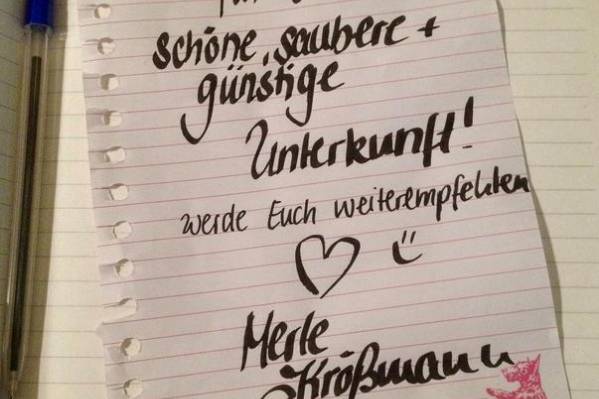 schöne, saubere +
günstige
Unterkunft!
werde Euch weiterempfehlen
Merle
Kroßmann